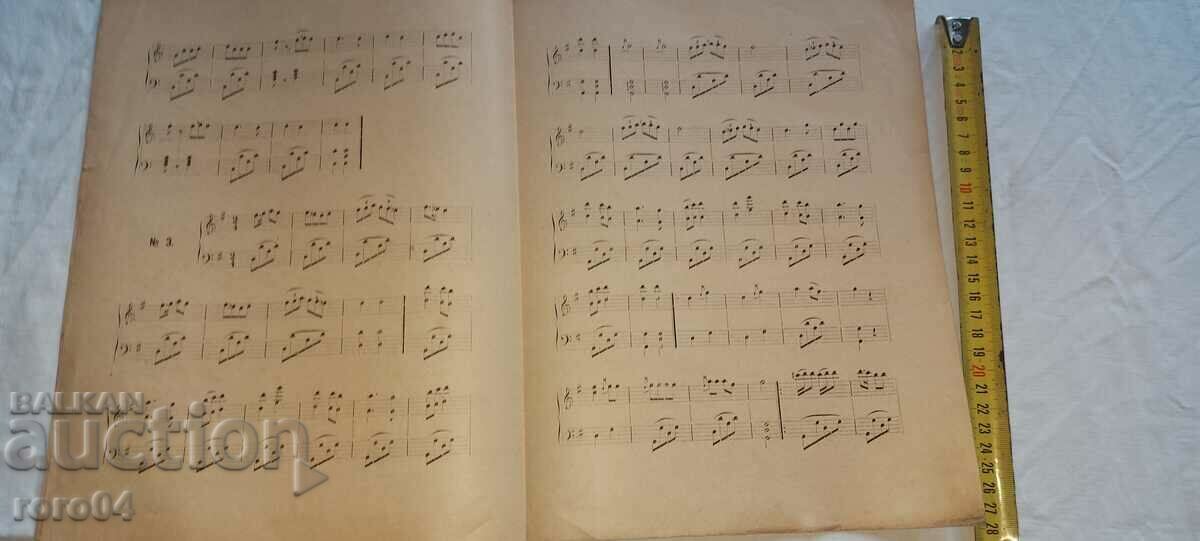 № 3.
BALKAN
auction
roro04
2
3
4
5
6
7
8
9
10
11
12
13
14
15
16
17
18
19
20
21
22
23
24
25
26
27
28